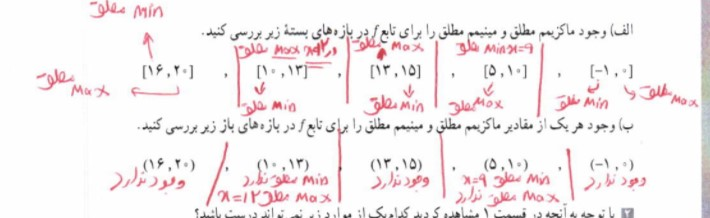 مطلق Min
الف) وجود ماکزیمم مطلق و مینیمم مطلق را برای تابع f در بازه‌های بستهٔ زیر بررسی کنید.
مطلق Min x=9 مطلق Max در x=12 Max مطلق
[-1, 0] , [5, 10] , [13, 15] , [10, 13] , [16, 20]
مطلق Max مطلق Min مطلق Max مطلق Min مطلق Min مطلق Max
ب) وجود هر یک از مقادیر ماکزیمم مطلق و مینیمم مطلق را برای تابع f در بازه‌های باز زیر بررسی کنید.
(-1, 0) , (5, 10) , (13, 15) , (10, 13) , (16, 20)
وجود ندارد Min مطلق x=9 وجود ندارد Min مطلق ندارد وجود ندارد
Max مطلق ندارد Max مطلق x=12
۲ با توجه به آنچه در قسمت ۱ مشاهده کردید کدام یک از موارد زیر نمی‌تواند درست باشد؟